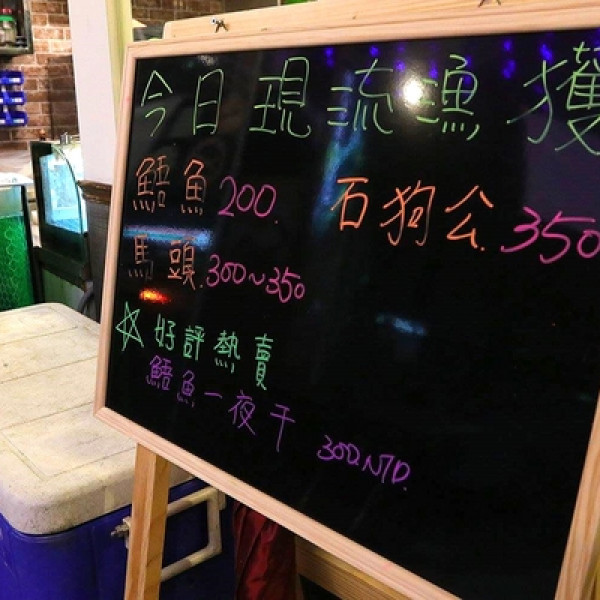 今日現流漁獲
鯃魚200. 石狗公.350
馬頭.300~350
☆好評熱賣
鯃魚一夜干 300.NTD.